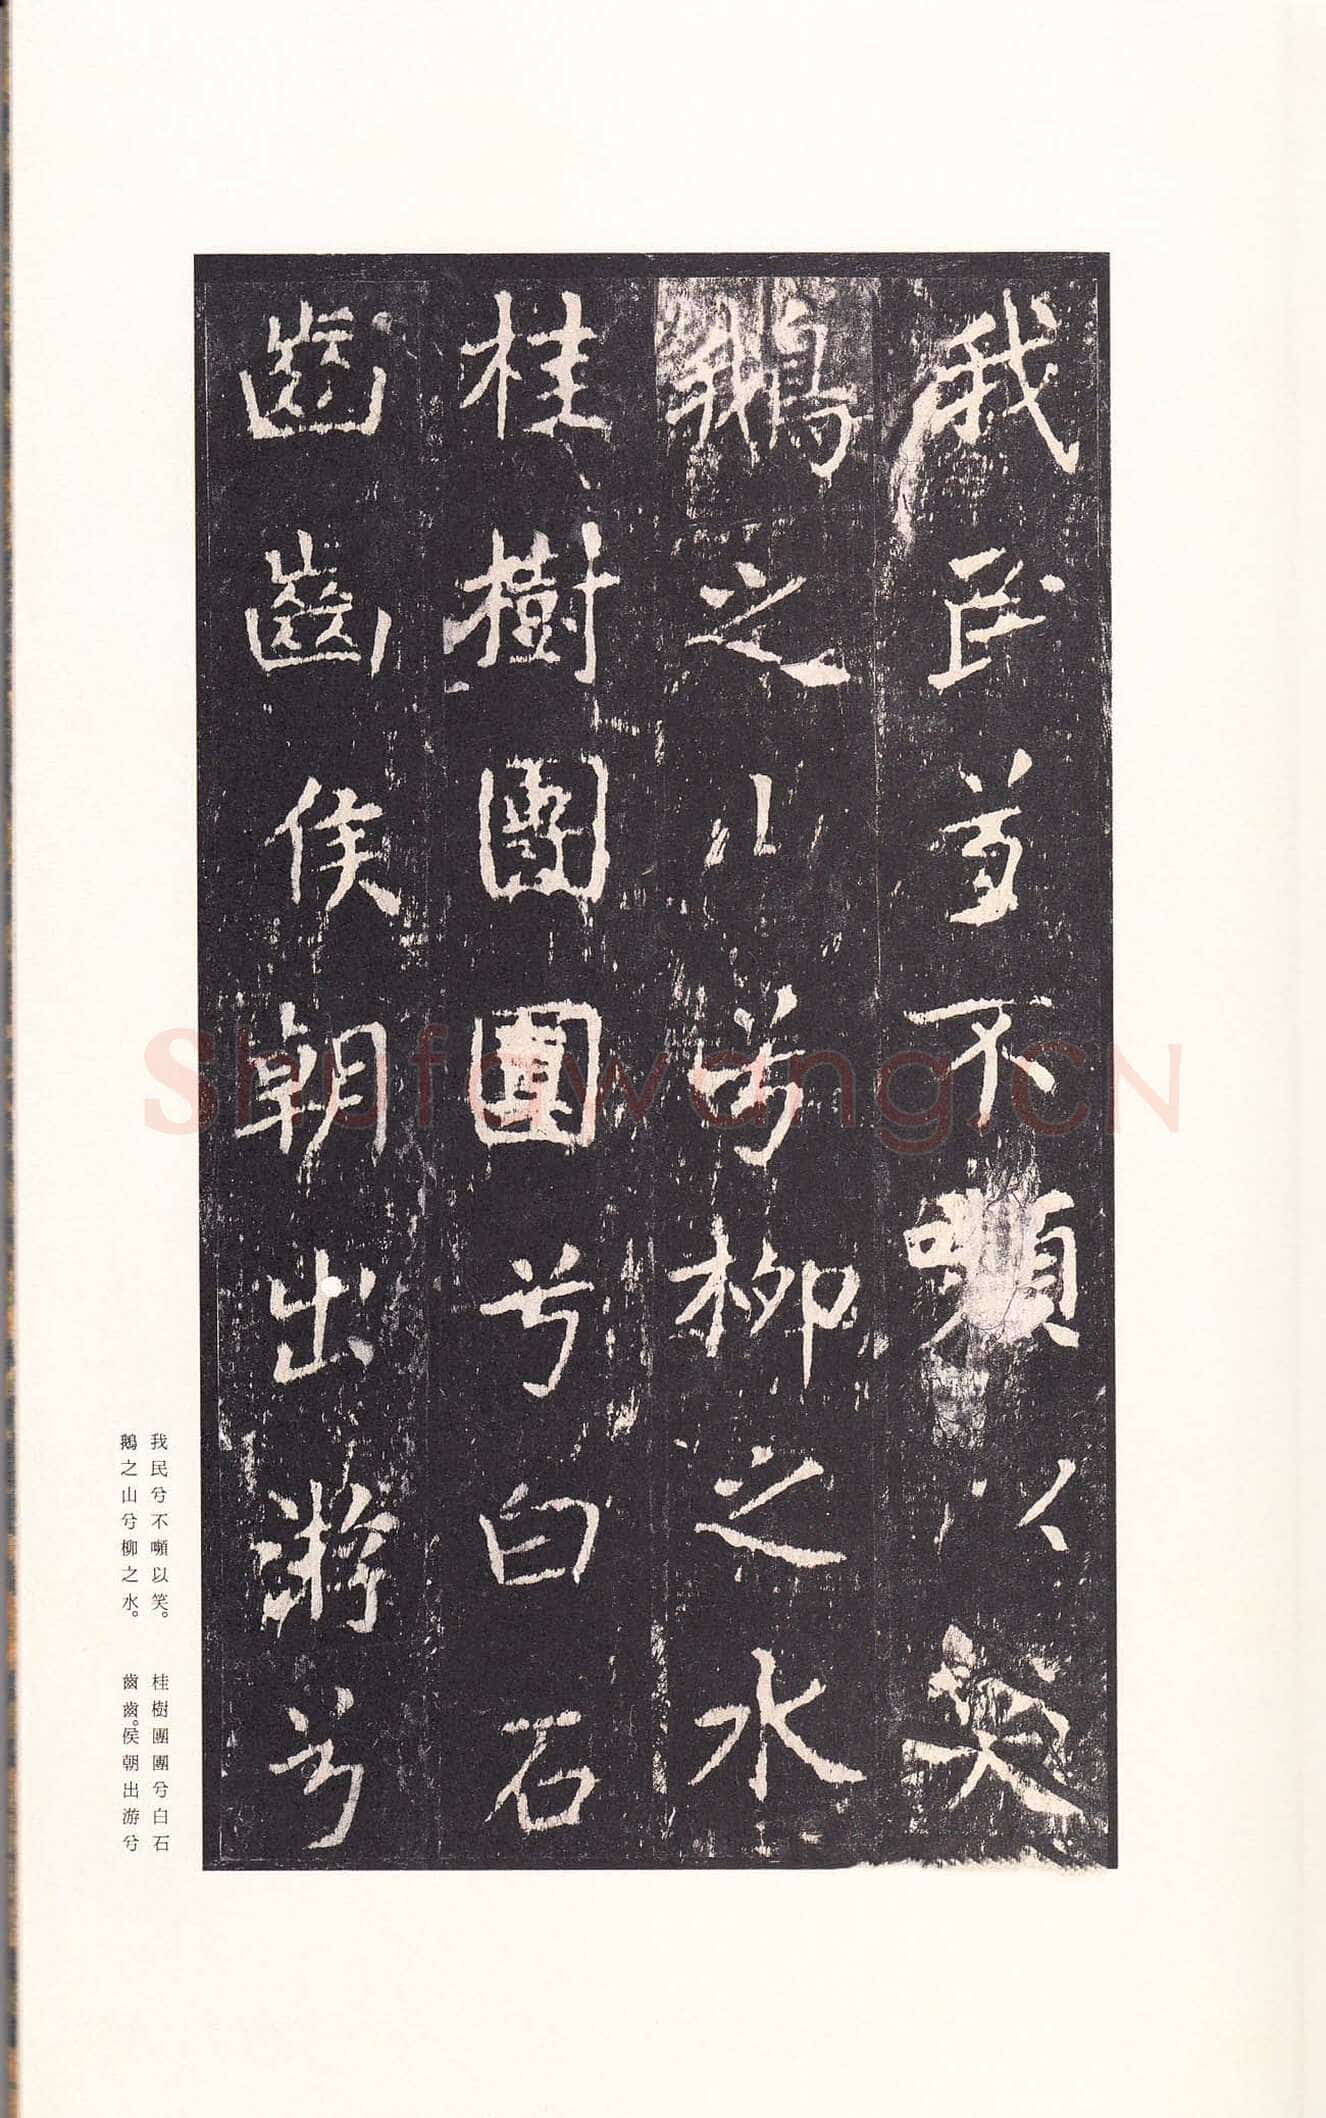 我民兮不嚬以笑
鵝之山兮柳之水
桂樹團團兮白石
齒齒侯朝出游兮
我民兮不嚬以笑。
鵝之山兮柳之水。
桂樹團團兮白石
齒齒。侯朝出游兮
Shufawang.CN